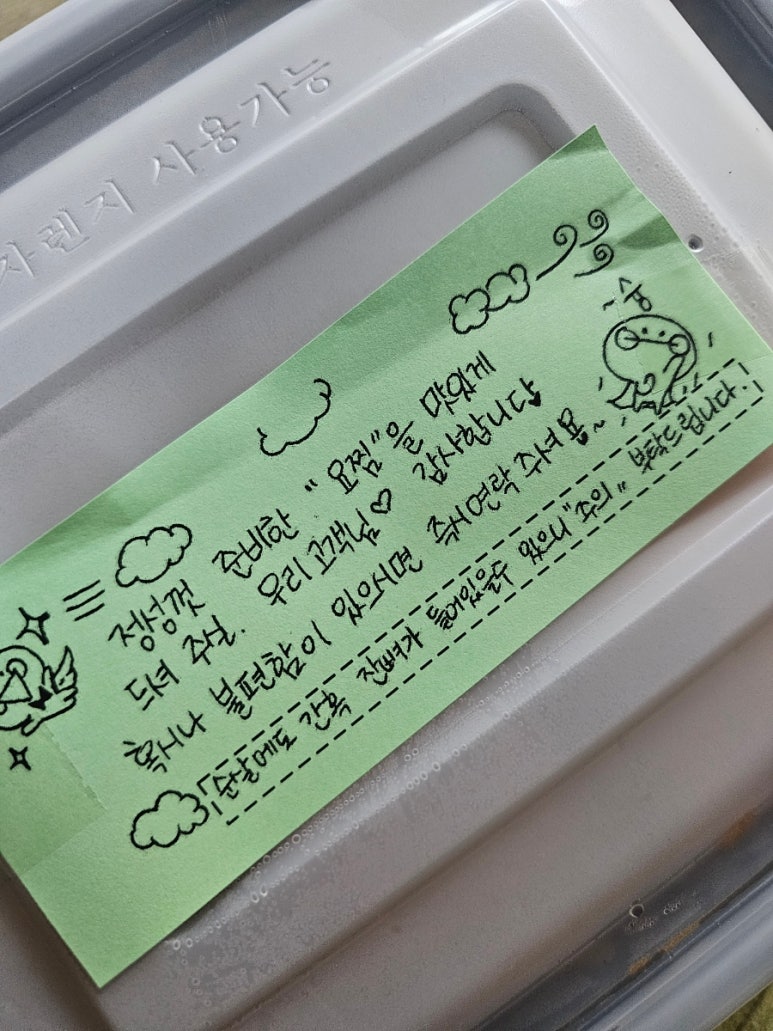 자렌지 사용가능
~슝
정성껏 준비한 "요찜"을 맛있게
드셔 주신. 우리 고객님♡ 감사합니다♥
혹시나 불편함이 있으시면 즉시연락 주셔용~
순살에도 간혹 잔뼈가 들어있을수 있으니 "주의" 부탁드립니다.